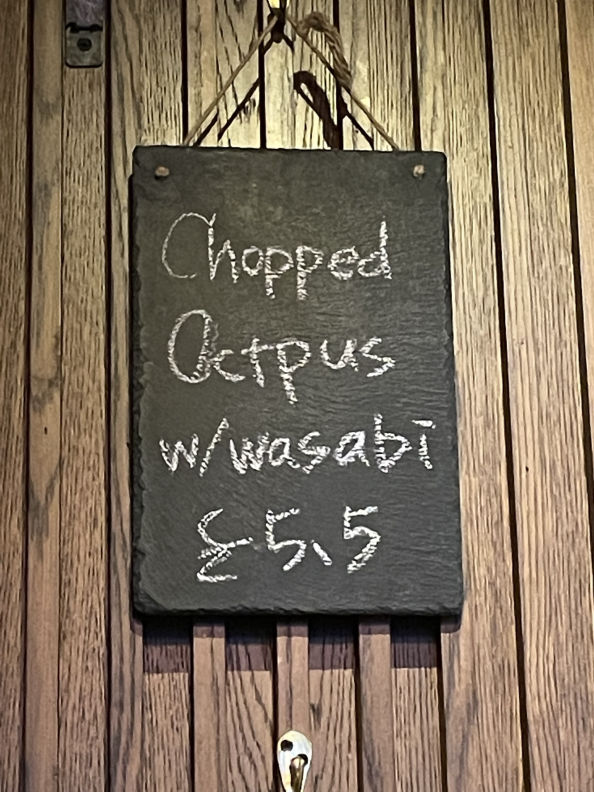 Chopped
Octpus
w/wasabi
£5.5